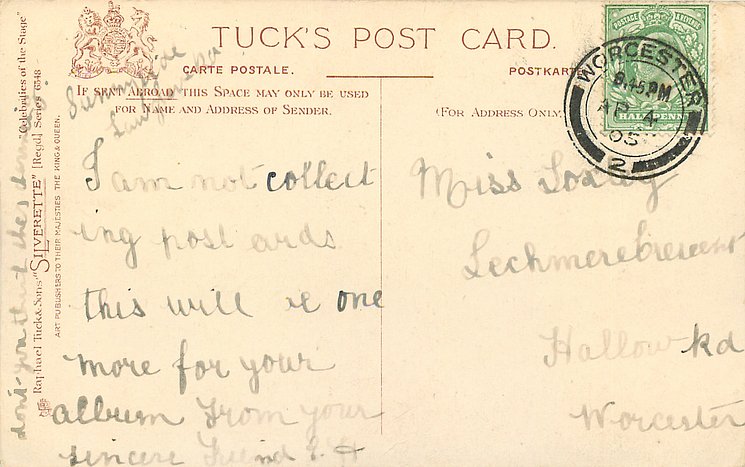 TUCK'S POST CARD.
CARTE POSTALE.
POSTKARTE
IF SENT ABROAD THIS SPACE MAY ONLY BE USED
FOR NAME AND ADDRESS OF SENDER.
(FOR ADDRESS ONLY
POSTAGE REVENUE
HALFPENNY
WORCESTER
8.15 PM
AP 4
05
2
I am not collect
ing post ards
this will e one
more for your
album from your
sincere friend
Miss Loxley
Lechmere Crescent
Hallow Rd
Worcester
Raphael Tuck & Sons' "SILVERETTE" [Regd.] Series 6548 "Celebrities of the Stage"
ART PUBLISHERS TO THEIR MAJESTIES THE KING & QUEEN.
don't you think she's